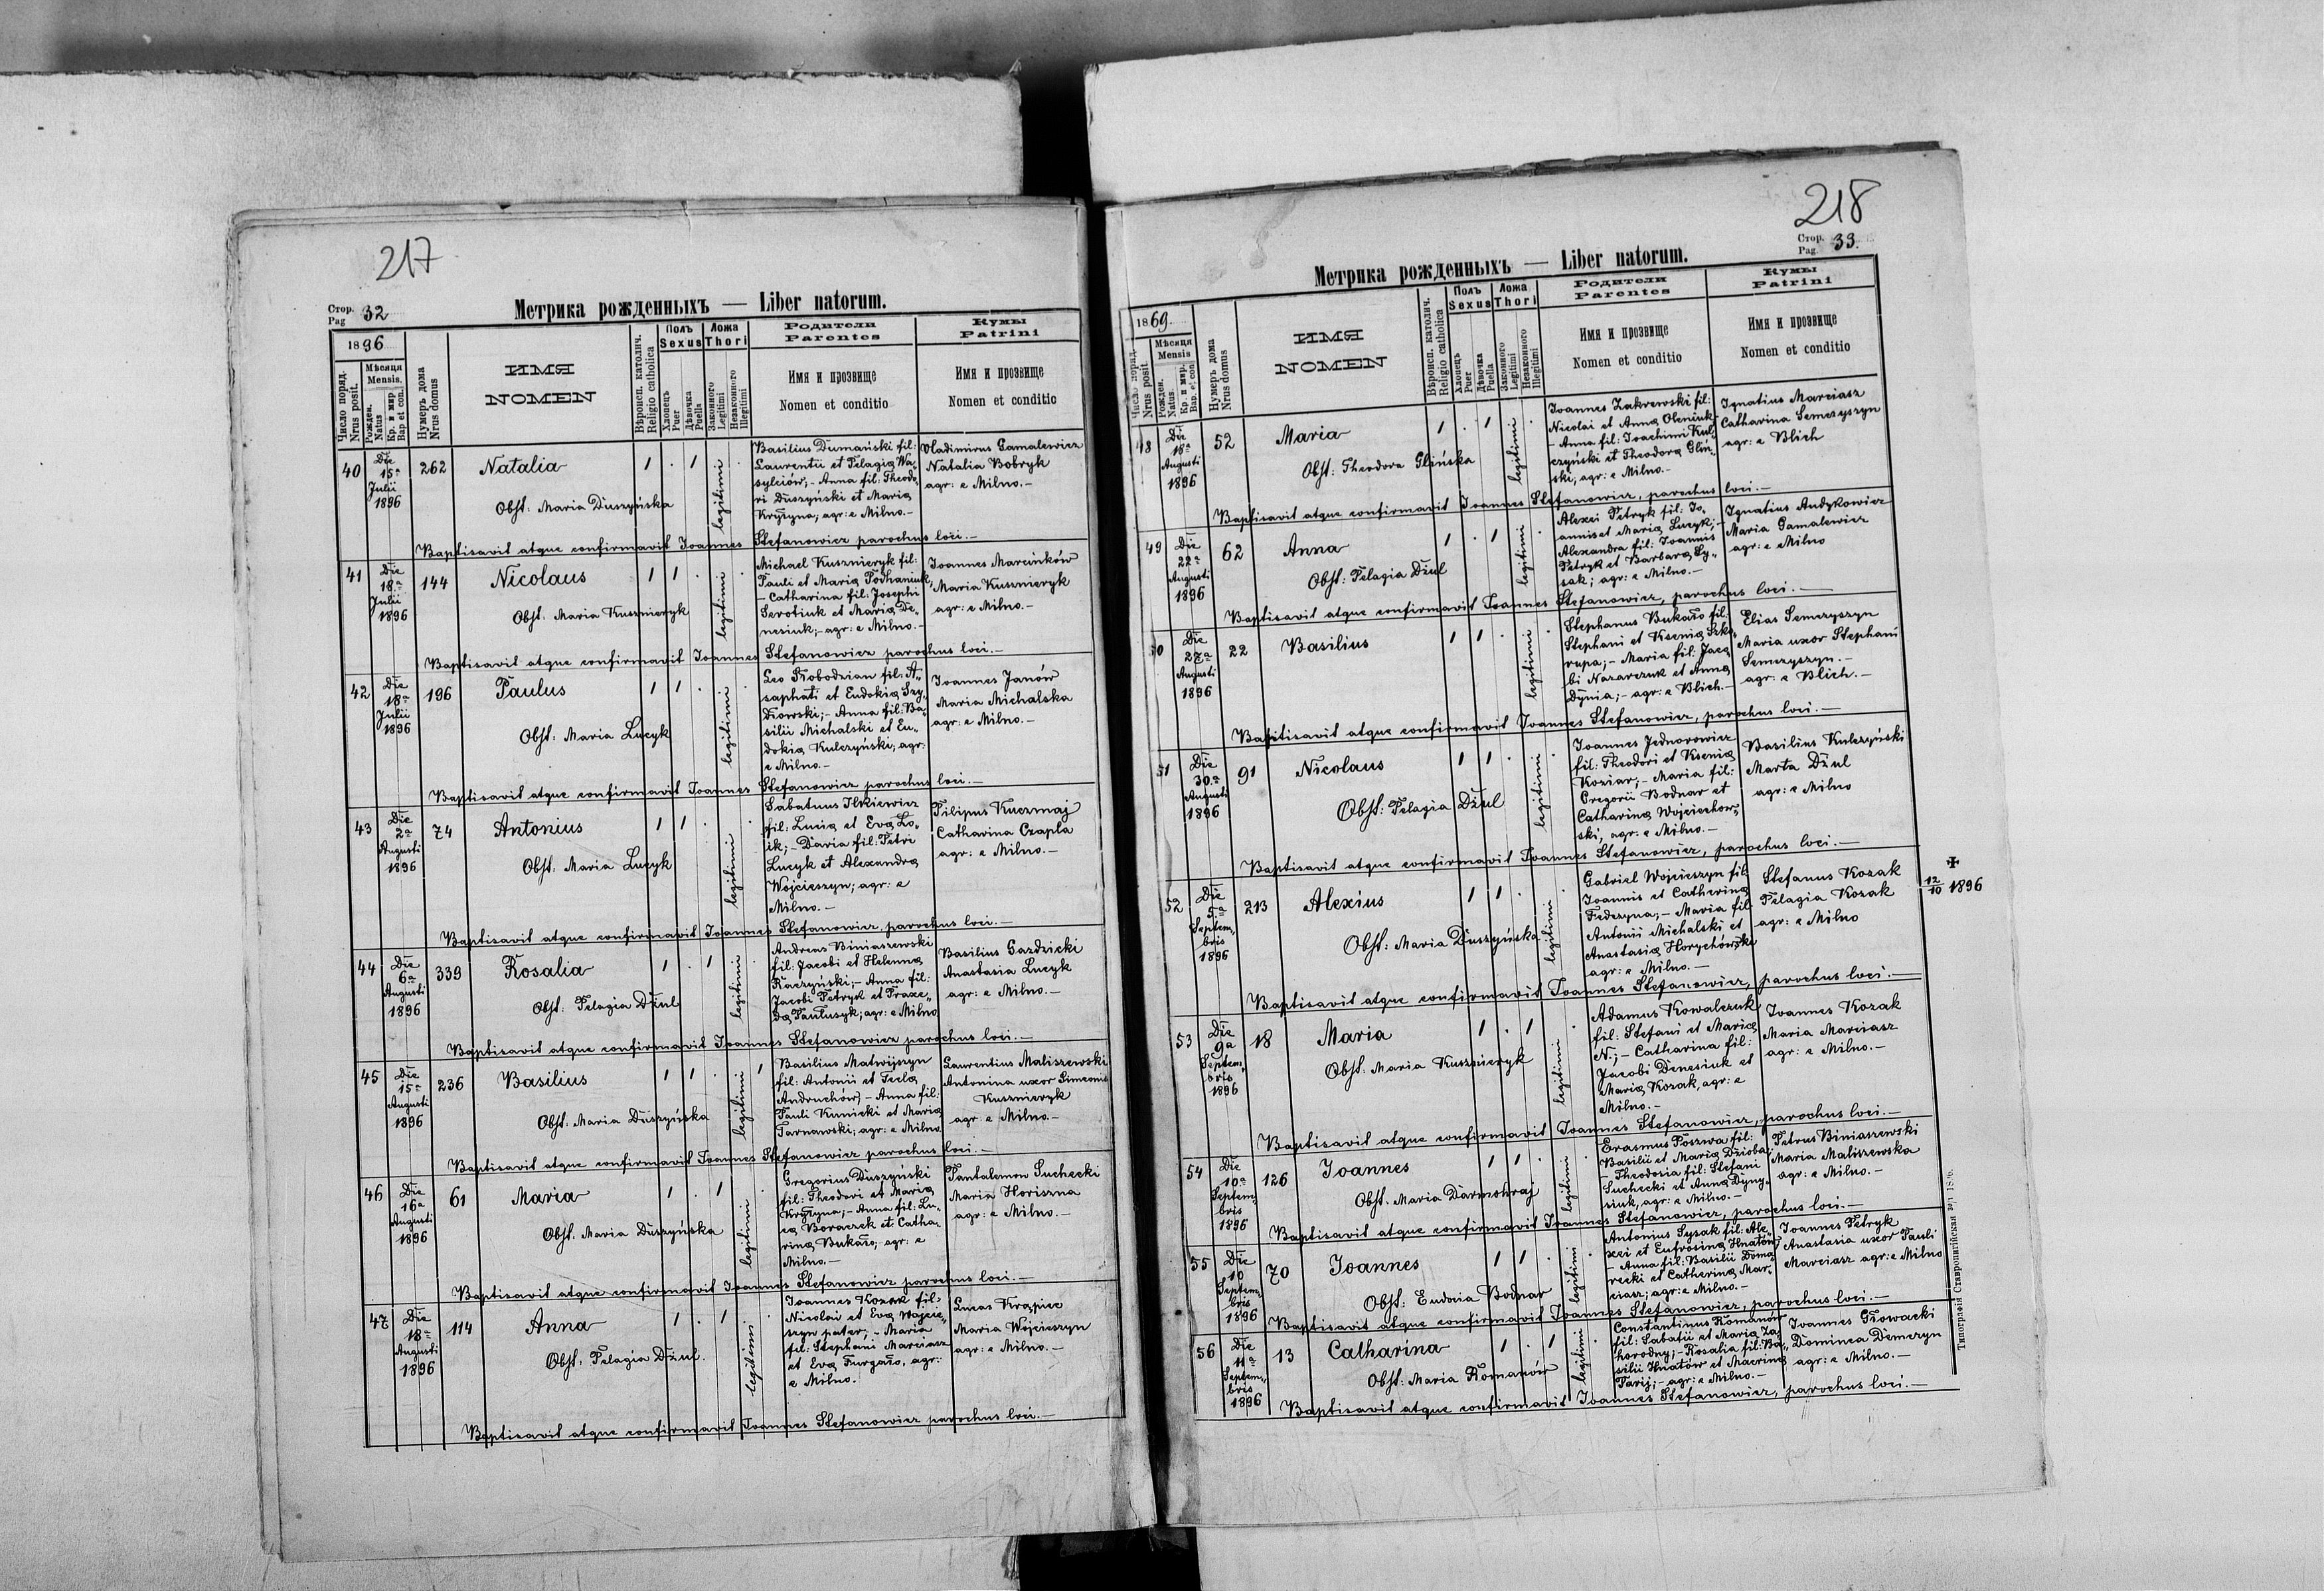 217
Стор.
Pag 32
Метрика рожденныхъ — Liber natorum.
1896
Число поряд.
Nrus posit.
Мѣсяця
Mensis.
Рожден.
Natus
Кр. и мѵр.
Bap et con.
Нумеръ дома
Nrus domus
ИМЯ
NOMEN
Вѣроисп. католич.
Religio catholica
Полъ
Sexus
Хлопецъ
Puer
Дѣвочка
Puella
Ложа
Thori
Законного
Legitimi
Незаконного
Illegitimi
Родители
Parentes
Имя и прозвище
Nomen et conditio
Кумы
Patrini
Имя и прозвище
Nomen et conditio
40
Die
15ª
Julii
1896
262
Natalia
Obst: Maria Duszyńska
1 . 1
legitimi
Basilius Dumański fil:
Laurentii et Pelagia Wa„
sylciów; - Anna fil: Theodo„
ri Duszyński et Maria
Kryzyna; agr: e Milno. -
Vladimirus Gamalewicz
Natalia Bobryk
agr: e Milno. -
Baptisavit atque confirmavit Joannes Stefanowicz parochus loci. -
41
Die
18ª
Julii
1896
144
Nicolaus
Obst: Maria Kusznieryk
1 1 .
legitimi
Michael Kusznieryk fil:
Pauli et Maria Pothaniuk,
- Catharina fil: Josephi
Serotiuk et Maria De„
nesiuk; - agr: e Milno. -
Joannes Marcinków
Maria Kusznieryk
agr: e Milno. -
Baptisavit atque confirmavit Joannes Stefanowicz parochus loci. -
42
Die
18ª
Julii
1896
196
Paulus
Obst: Maria Lucyk
1 1 .
legitimi
Leo Kobodzian fil: A„
saphati et Eudokia Szy„
dłowski; - Anna fil: Ba„
silii Michalski et Eu„
dokia Kulczyński; agr:
e Milno. -
Joannes Janów
Maria Michalska
agr: e Milno. -
Baptisavit atque confirmavit Joannes Stefanowicz parochus loci. -
43
Die
2ª
Augusti
1896
74
Antonius
Obst: Maria Lucyk
1 1 .
legitimi
Sabatuus Ilkiewicz
fil: Lucia et Eva Ło„
ik; - Daria fil: Petri
Lucyk et Alexandra
Wojcieszyn; agr: e
Milno. -
Filipus Kuczmaj
Catharina Czapla
agr: e Milno. -
Baptisavit atque confirmavit Joannes Stefanowicz parochus loci. -
44
Die
6ª
Augusti
1896
339
Rosalia
Obst: Pelagia Dżul
1 . 1
legitimi
Andreas Biniaszewski
fil: Jacobi et Helenna
Raczyński; - Anna fil:
Jacobi Petryk et Praxe„
da Pautusyk; agr: e Milno
Basilius Gazdzicki
Anastasia Lucyk
agr: e Milno. -
Baptisavit atque confirmavit Joannes Stefanowicz parochus loci. -
45
Die
15ª
Augusti
1896
236
Basilius
Obst: Maria Duszyńska
1 1 .
legitimi
Basilius Matwijszyn
fil: Antonii et Tecla
Andruchów, - Anna fil:
Pauli Kunicki et Maria
Tarnawski; agr: e Milno
Laurentius Maliszewski
Antonina uxor Simeonis
Kusznieryk
agr: e Milno. -
Baptisavit atque confirmavit Joannes Stefanowicz parochus loci. -
46
Die
16ª
Augusti
1896
61
Maria
Obst: Maria Duszyńska
1 . 1
legitimi
Gregorius Duszyński
fil: Theodori et Maria
Kryzyna; - Anna fil: Lu„
ca Boraczek et Catha„
rina Bukało; agr: e
Milno. -
Pantalemon Suchecki
Maria Horiszna
agr: e Milno. -
Baptisavit atque confirmavit Joannes Stefanowicz parochus loci. -
47
Die
18ª
Augusti
1896
114
Anna
Obst: Pelagia Dżul.
1 . 1
legitimi
Joannes Kozak fil:
Nicolai et Eva Wojcie„
szyn pater; - Maria
fil: Stephani Marciasz
et Eva Furgało, agr:
e Milno.
Lucas Krąpiec
Maria Wojcieszyn
agr: e Milno. -
Baptisavit atque confirmavit Joannes Stefanowicz parochus loci. -
218
Стор.
Pag. 33.
Метрика рожденныхъ — Liber natorum.
1869.
Число поряд.
Nrus posit.
Мѣсяця
Mensis
Рожден.
Natus.
Кр. и мѵр.
Bap. et con.
Нумеръ дома
Nrus domus
ИМЯ
NOMEN
Вѣроисп. католич.
Religio catholica
Полъ
Sexus
Хлопецъ
Puer
Дѣвочка
Puella
Ложа
Thori
Законного
Legitimi
Незаконного
Illegitimi
Родители
Parentes
Имя и прозвище
Nomen et conditio
Кумы
Patrini
Имя и прозвище
Nomen et conditio
48
Die
18ª
Augusti
1896
52
Maria
Obst: Theodora Glińska
1 . 1
legitimi
Joannes Zakrewski fil:
Nicolai et Anna Oleniuk
- Anna fil: Joachimi Kul„
czyński et Theodora Gliń„
ski, agr: e Milno. -
Ignatius Marciasz
Catharina Semczyszyn
agr: e Blich
Baptisavit atque confirmavit Joannes Stefanowicz, parochus loci. -
49
Die
22ª
Augusti
1896
62
Anna
Obst: Pelagia Dżul
1 . 1
legitimi
Alexei Petryk fil: Jo„
annis et Maria Lucyk; -
Alexandra fil: Joannis
Petryk et Barbara Ły„
sak; agr: e Milno. -
Ignatius Andykowicz
Maria Gamalewicz
agr: e Milno
Baptisavit atque confirmavit Joannes Stefanowicz, parochus loci. -
50
Die
27ª
Augusti
1896
22
Basilius
1 1 .
legitimi
Stephanus Bukało fil:
Stephani et Ksenia Szko„
rupa; - Maria fil: Jaco„
bi Nazarczuk et Anna
Dynia; - agr: e Blich. -
Elias Semczyszyn
Maria uxor Stephani
Semczyszyn. -
agr: e Blich. -
Baptisavit atque confirmavit Joannes Stefanowicz, parochus loci. -
51
Die
30ª
Augusti
1896
91
Nicolaus
Obst: Pelagia Dżul
1 1 .
legitimi
Joannes Jednorowicz
fil: Theodori et Ksenia
Koziar; - Maria fil:
Gregorii Bodnar et
Catharina Wojciechow„
ski, agr: e Milno. -
Basilius Kulczyński
Marta Dżul
agr: e Milno
Baptisavit atque confirmavit Joannes Stefanowicz, parochus loci. -
52
Die
5ª
Septem„
bris
1896
213
Alexius
Obst: Maria Duszyńska
1 1 .
legitimi
Gabriel Wojcieszyn fil:
Joannis et Catherina
Fedczyna; - Maria fil:
Antonii Michalski et
Anastasia Horychówski
agr: e Milno. -
Stefanus Kozak
Pelagia Kozak
agr: e Milno
✠
12/10 1896
Baptisavit atque confirmavit Joannes Stefanowicz, parochus loci. -
53
Die
9ª
Septem„
bris
1896
18
Maria
Obst: Maria Kusznieryk
1 . 1
legitimi
Adamus Kowalczuk
fil: Stefani et Maria
N.; - Catharina fil:
Jacobi Denesiuk et
Maria Kozak, agr: e
Milno. -
Joannes Kozak
Maria Marciasz
agr: e Milno. -
Baptisavit atque confirmavit Joannes Stefanowicz, parochus loci. -
54
Die
10ª
Septem
bris
1896
126
Joannes
Obst. Maria Darmohraj
1 1 .
legitimi
Erasmus Poszwa fil:
Basilii et Maria Dzioba,
- Theodosia fil: Stefani
Suchecki et Anna Dyny„
siuk, agr: e Milno. -
Petrus Biniaszewski
Maria Maliszewska
agr: e Milno. -
Baptisavit atque confirmavit Joannes Stefanowicz, parochus loci. -
55
Die
10
Septem„
bris
1896
70
Joannes
Obst: Eudocia Bodnar
1 1 .
legitimi
Antonius Łysak fil: Ale„
xei et Eufrosina Hnatów
- Anna fil: Basilii Doma„
recki et Catherina Mar„
ciasz; agr: e Milno. -
Joannes Petryk
Anastasia uxor Pauli
Marciasz agr: e Milno
Baptisavit atque confirmavit Joannes Stefanowicz, parochus loci. -
56
Die
11ª
Septem„
bris
1896
13
Catharina
Obst: Maria Romanów
1 . 1
legitimi
Constantinus Romanów
fil: Sabatii et Maria Za„
horodny; - Rosalia fil: Ba„
silii Hnatów et Macrina
Parij; - agr: e Milno. -
Joannes Głowacki
Dominca Demczyn
agr: e Milno. -
Baptisavit atque confirmavit Joannes Stefanowicz, parochus loci. -
Типографія Ставропигійская